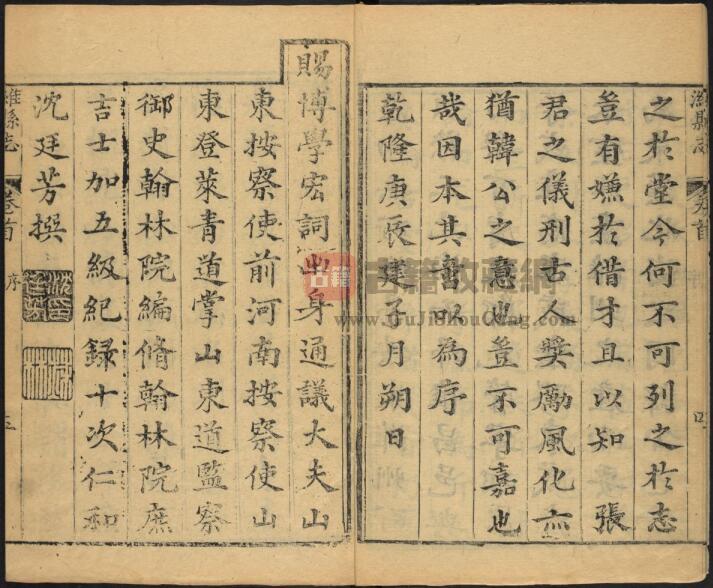 之於堂今何不可列之於志
豈有嫌於借才且以知 張
君之儀刑古人獎勵風化亦
猶韓公之意也豈不可嘉也
哉因本其以為序
乾隆庚辰建子月朔日
賜博學宏詞出身通議大夫山
東按察使前河南按察使山
東登萊青道掌山東道監察
御史翰林院編脩翰林院庶
吉士加五級紀録十次仁和
沈廷芳撰
縣志 卷首 序
古籍 古籍收藏網
www.GuJiShouCang.com